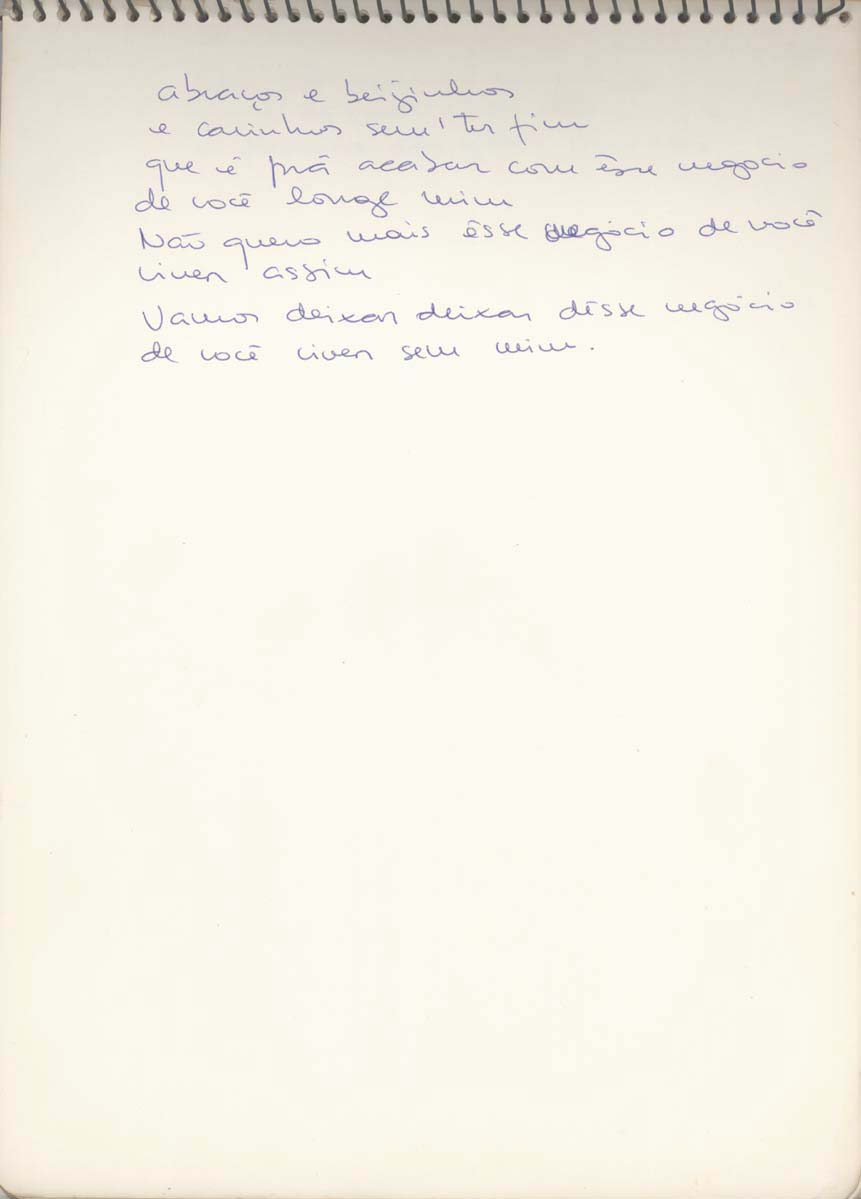 abraços e beijinhos
e carinhos sem ter fim
que é prá acabar com êsse negócio
de você longe mim
Não quero mais êsse negócio de você
viver assim
Vamos deixar deixar dêsse negócio
de você viver sem mim.